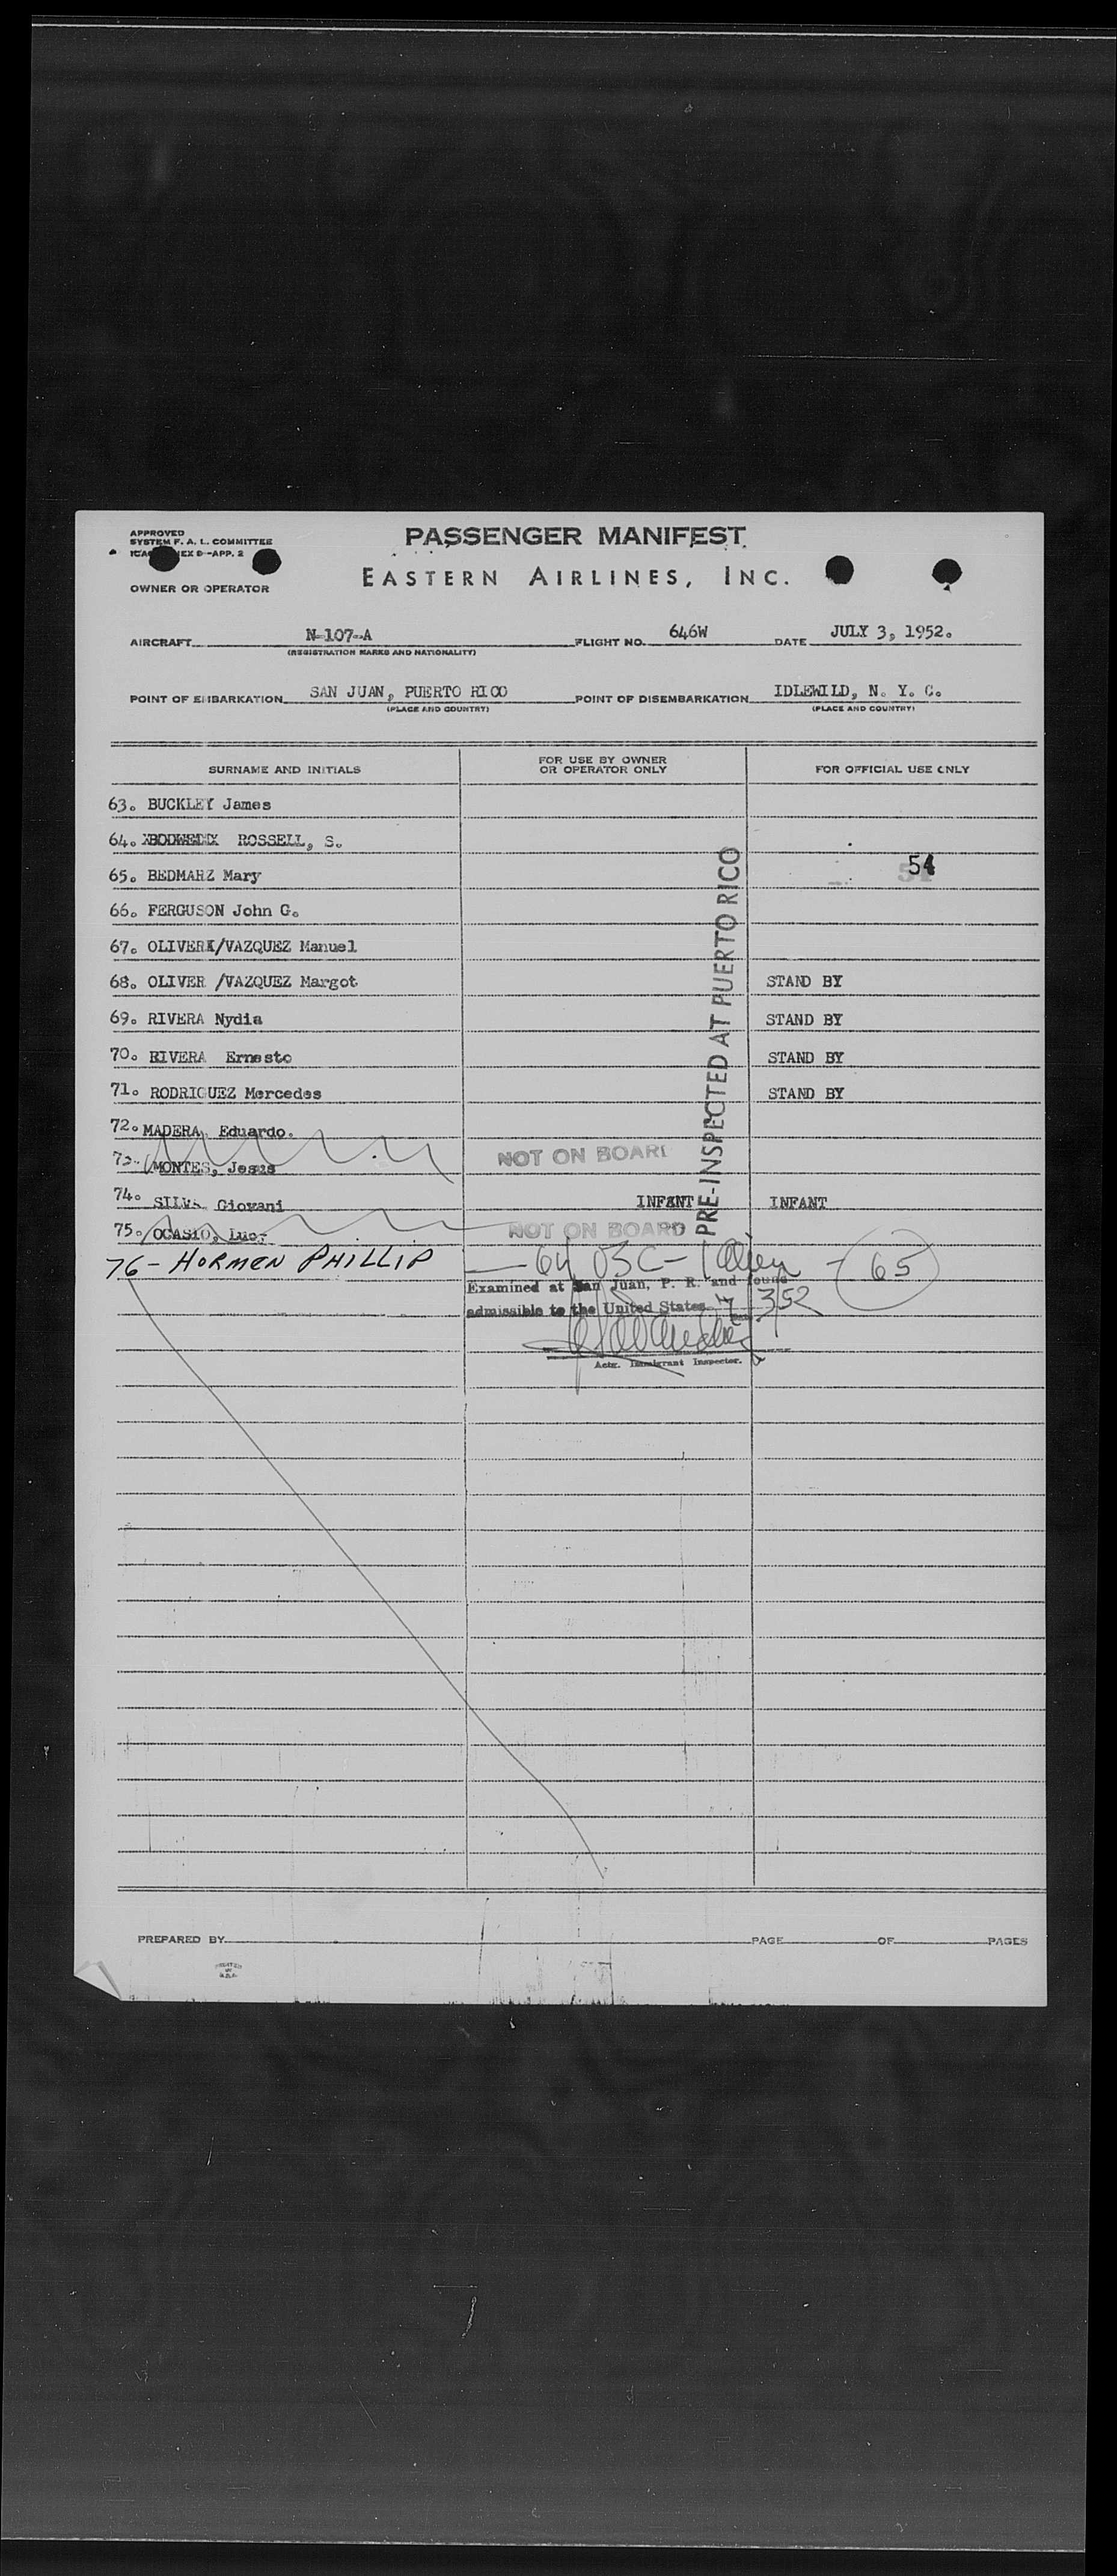 APPROVED
SYSTEM F. A. L. COMMITTEE
EX 9-APP. 2
OWNER OR OPERATOR
PASSENGER MANIFEST
EASTERN AIRLINES, INC.
AIRCRAFT N-107-A FLIGHT NO. 646W DATE JULY 3, 1952.
(REGISTRATION MARKS AND NATIONALITY)
POINT OF EMBARKATION SAN JUAN, PUERTO RICO POINT OF DISEMBARKATION IDLEWILD, N. Y. C.
(PLACE AND COUNTRY) (PLACE AND COUNTRY)
SURNAME AND INITIALS FOR USE BY OWNER OR OPERATOR ONLY FOR OFFICIAL USE ONLY
63. BUCKLEY James
64. ROSSELL, S.
65. BEDMARZ Mary 54
66. FERGUSON John G.
67. OLIVERA/VAZQUEZ Manuel
68. OLIVER /VAZQUEZ Margot STAND BY
69. RIVERA Nydia STAND BY
70. RIVERA Ernesto STAND BY
71. RODRIGUEZ Mercedes STAND BY
72. MADERA, Eduardo.
73. MONTES, Jesus NOT ON BOARD
74. SILVA Giovani INFANT INFANT
75. OCASIO, Luc NOT ON BOARD
PRE-INSPECTED AT PUERTO RICO
76- HORMEN PHILLIP 64 USC - 1 Alien - 65
Examined at San Juan, P. R. and found
admissible to the United States 7/3/52
Actg. Immigrant Inspector.
PREPARED BY PAGE OF PAGES
PRINTED
IN
U.S.A.